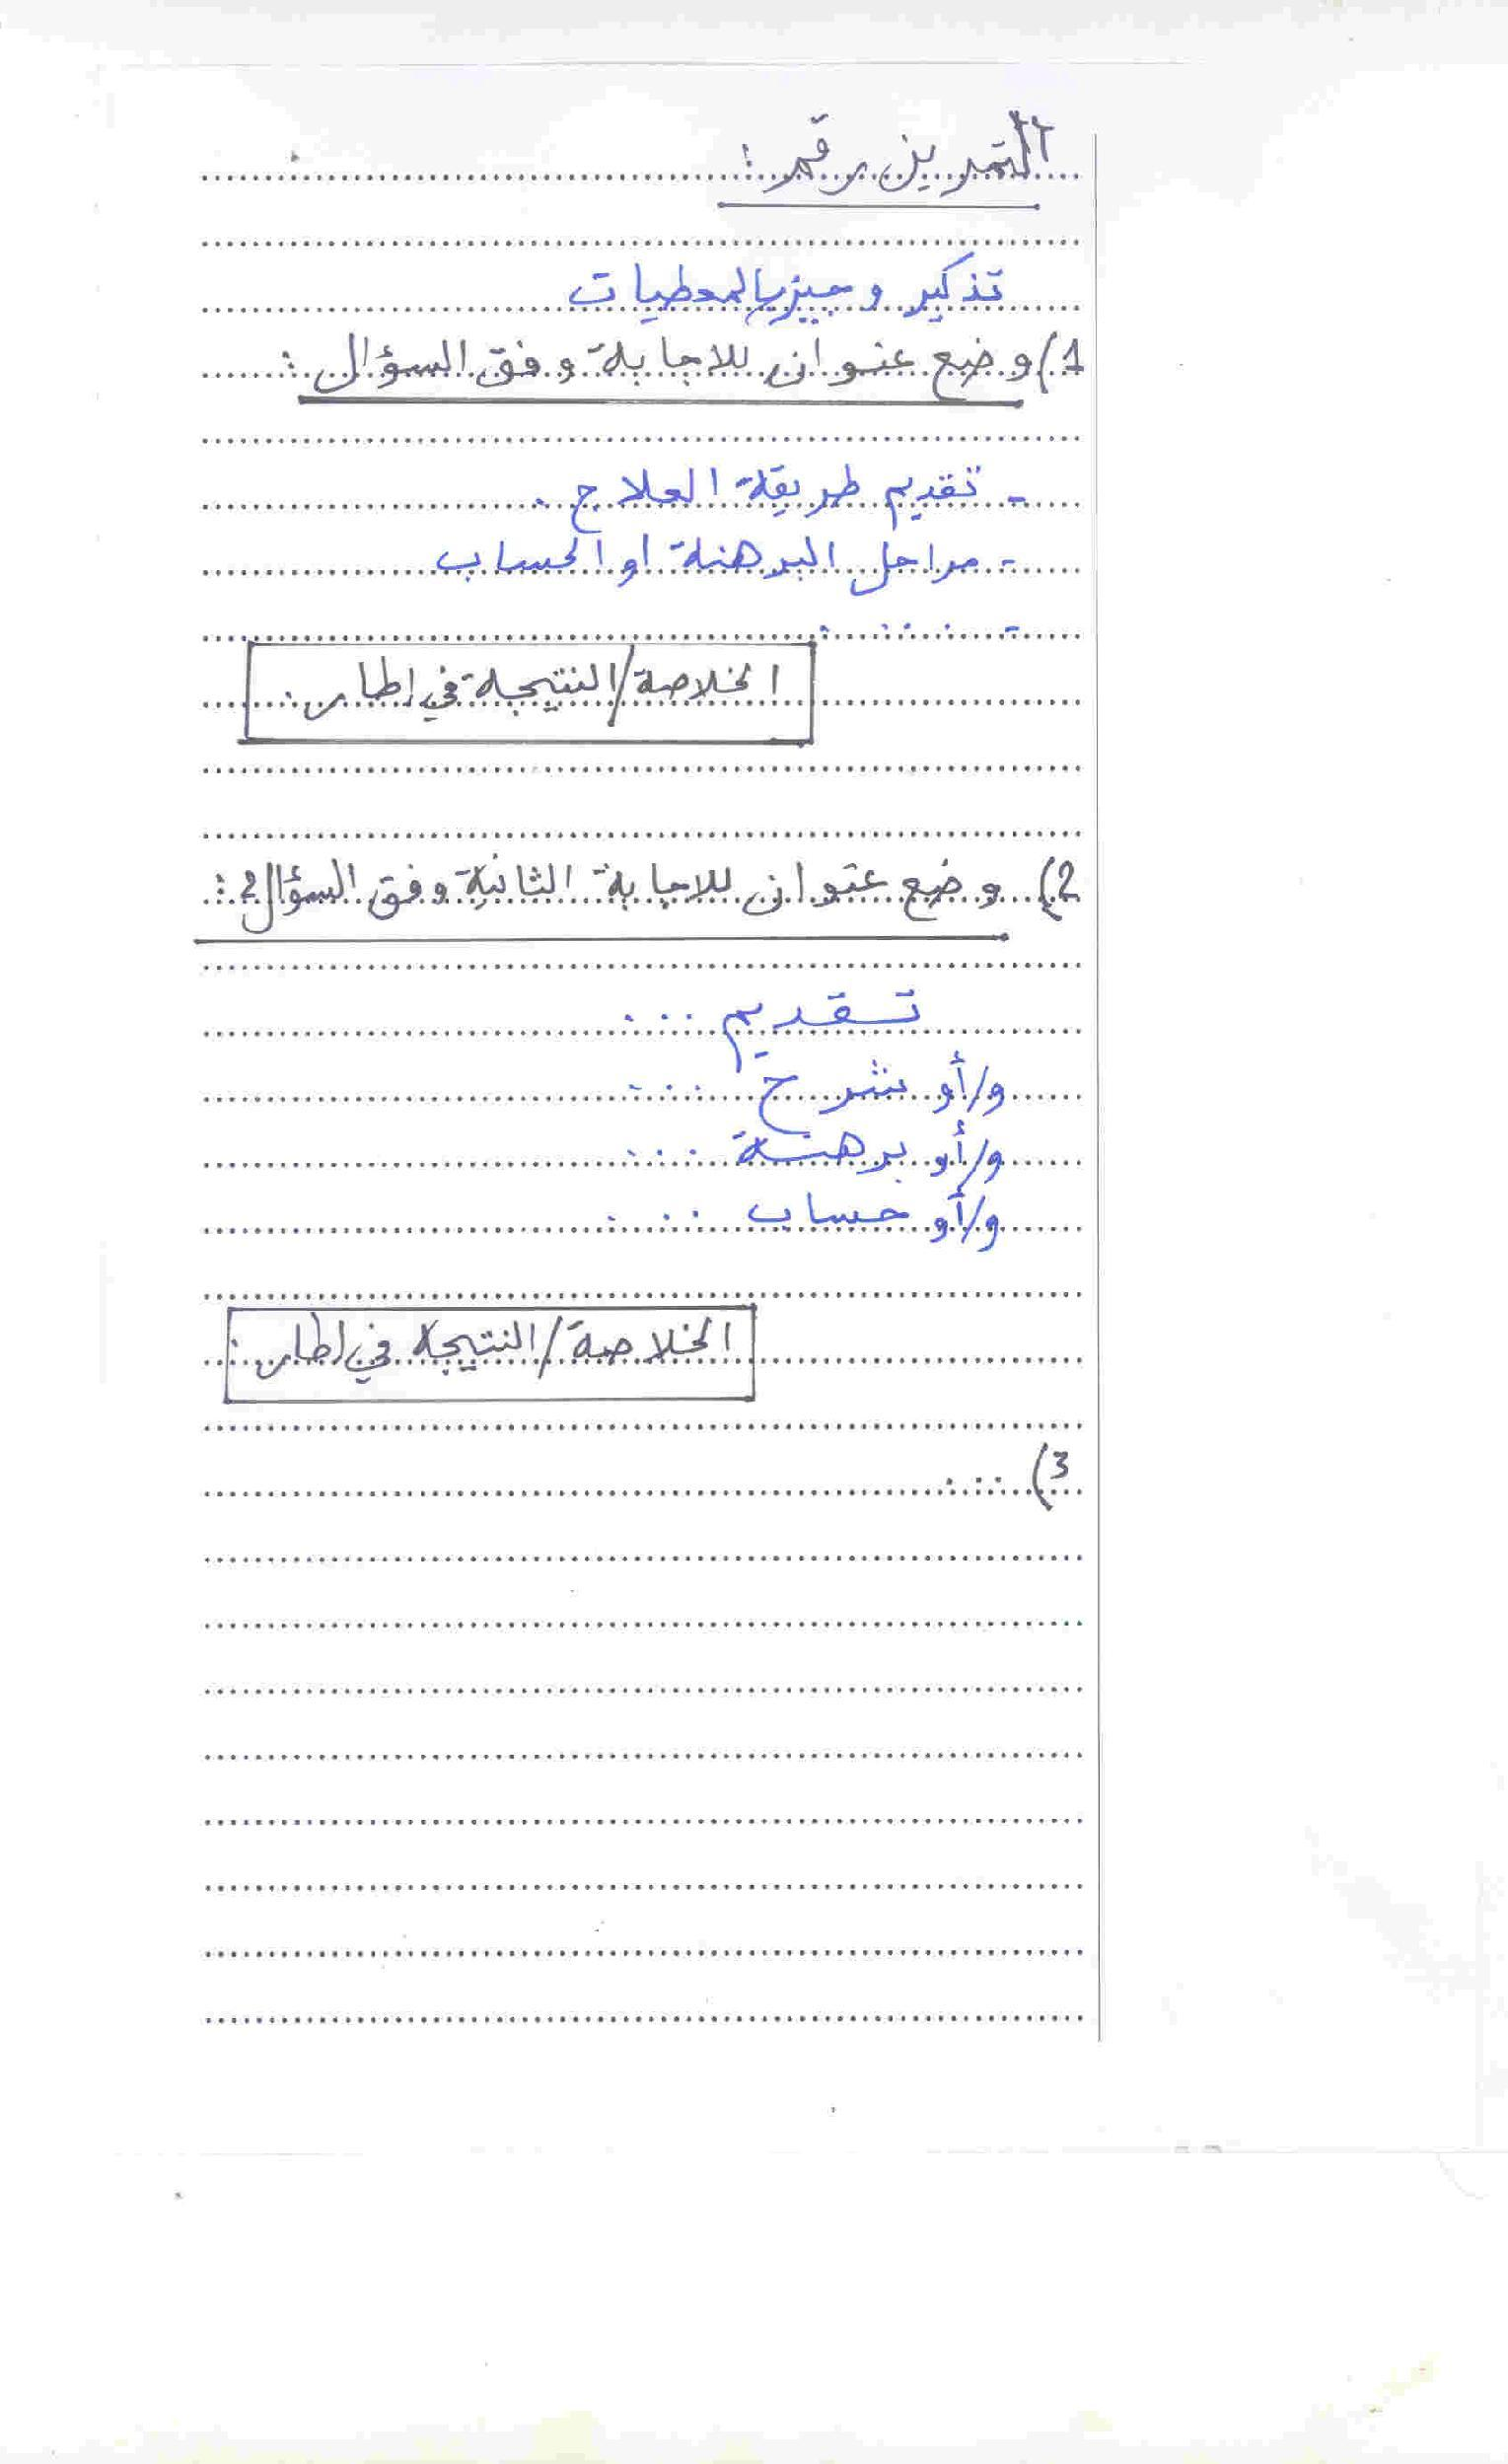 التمرين رقم :
تذكير وجيز بالمعطيات
1) وضع عنوان للاجابة وفق السؤال :
- تقديم طريقة العلاج .
- مراحل البرهنة او الحساب
- ....
الخلاصة/النتيجة في إطار :
2) وضع عنوان للاجابة الثانية وفق السؤال 2 :
تقديم ...
و/أو شرح ...
و/أو برهنة ...
و/أو حساب ...
الخلاصة/النتيجة في إطار :
3) ...